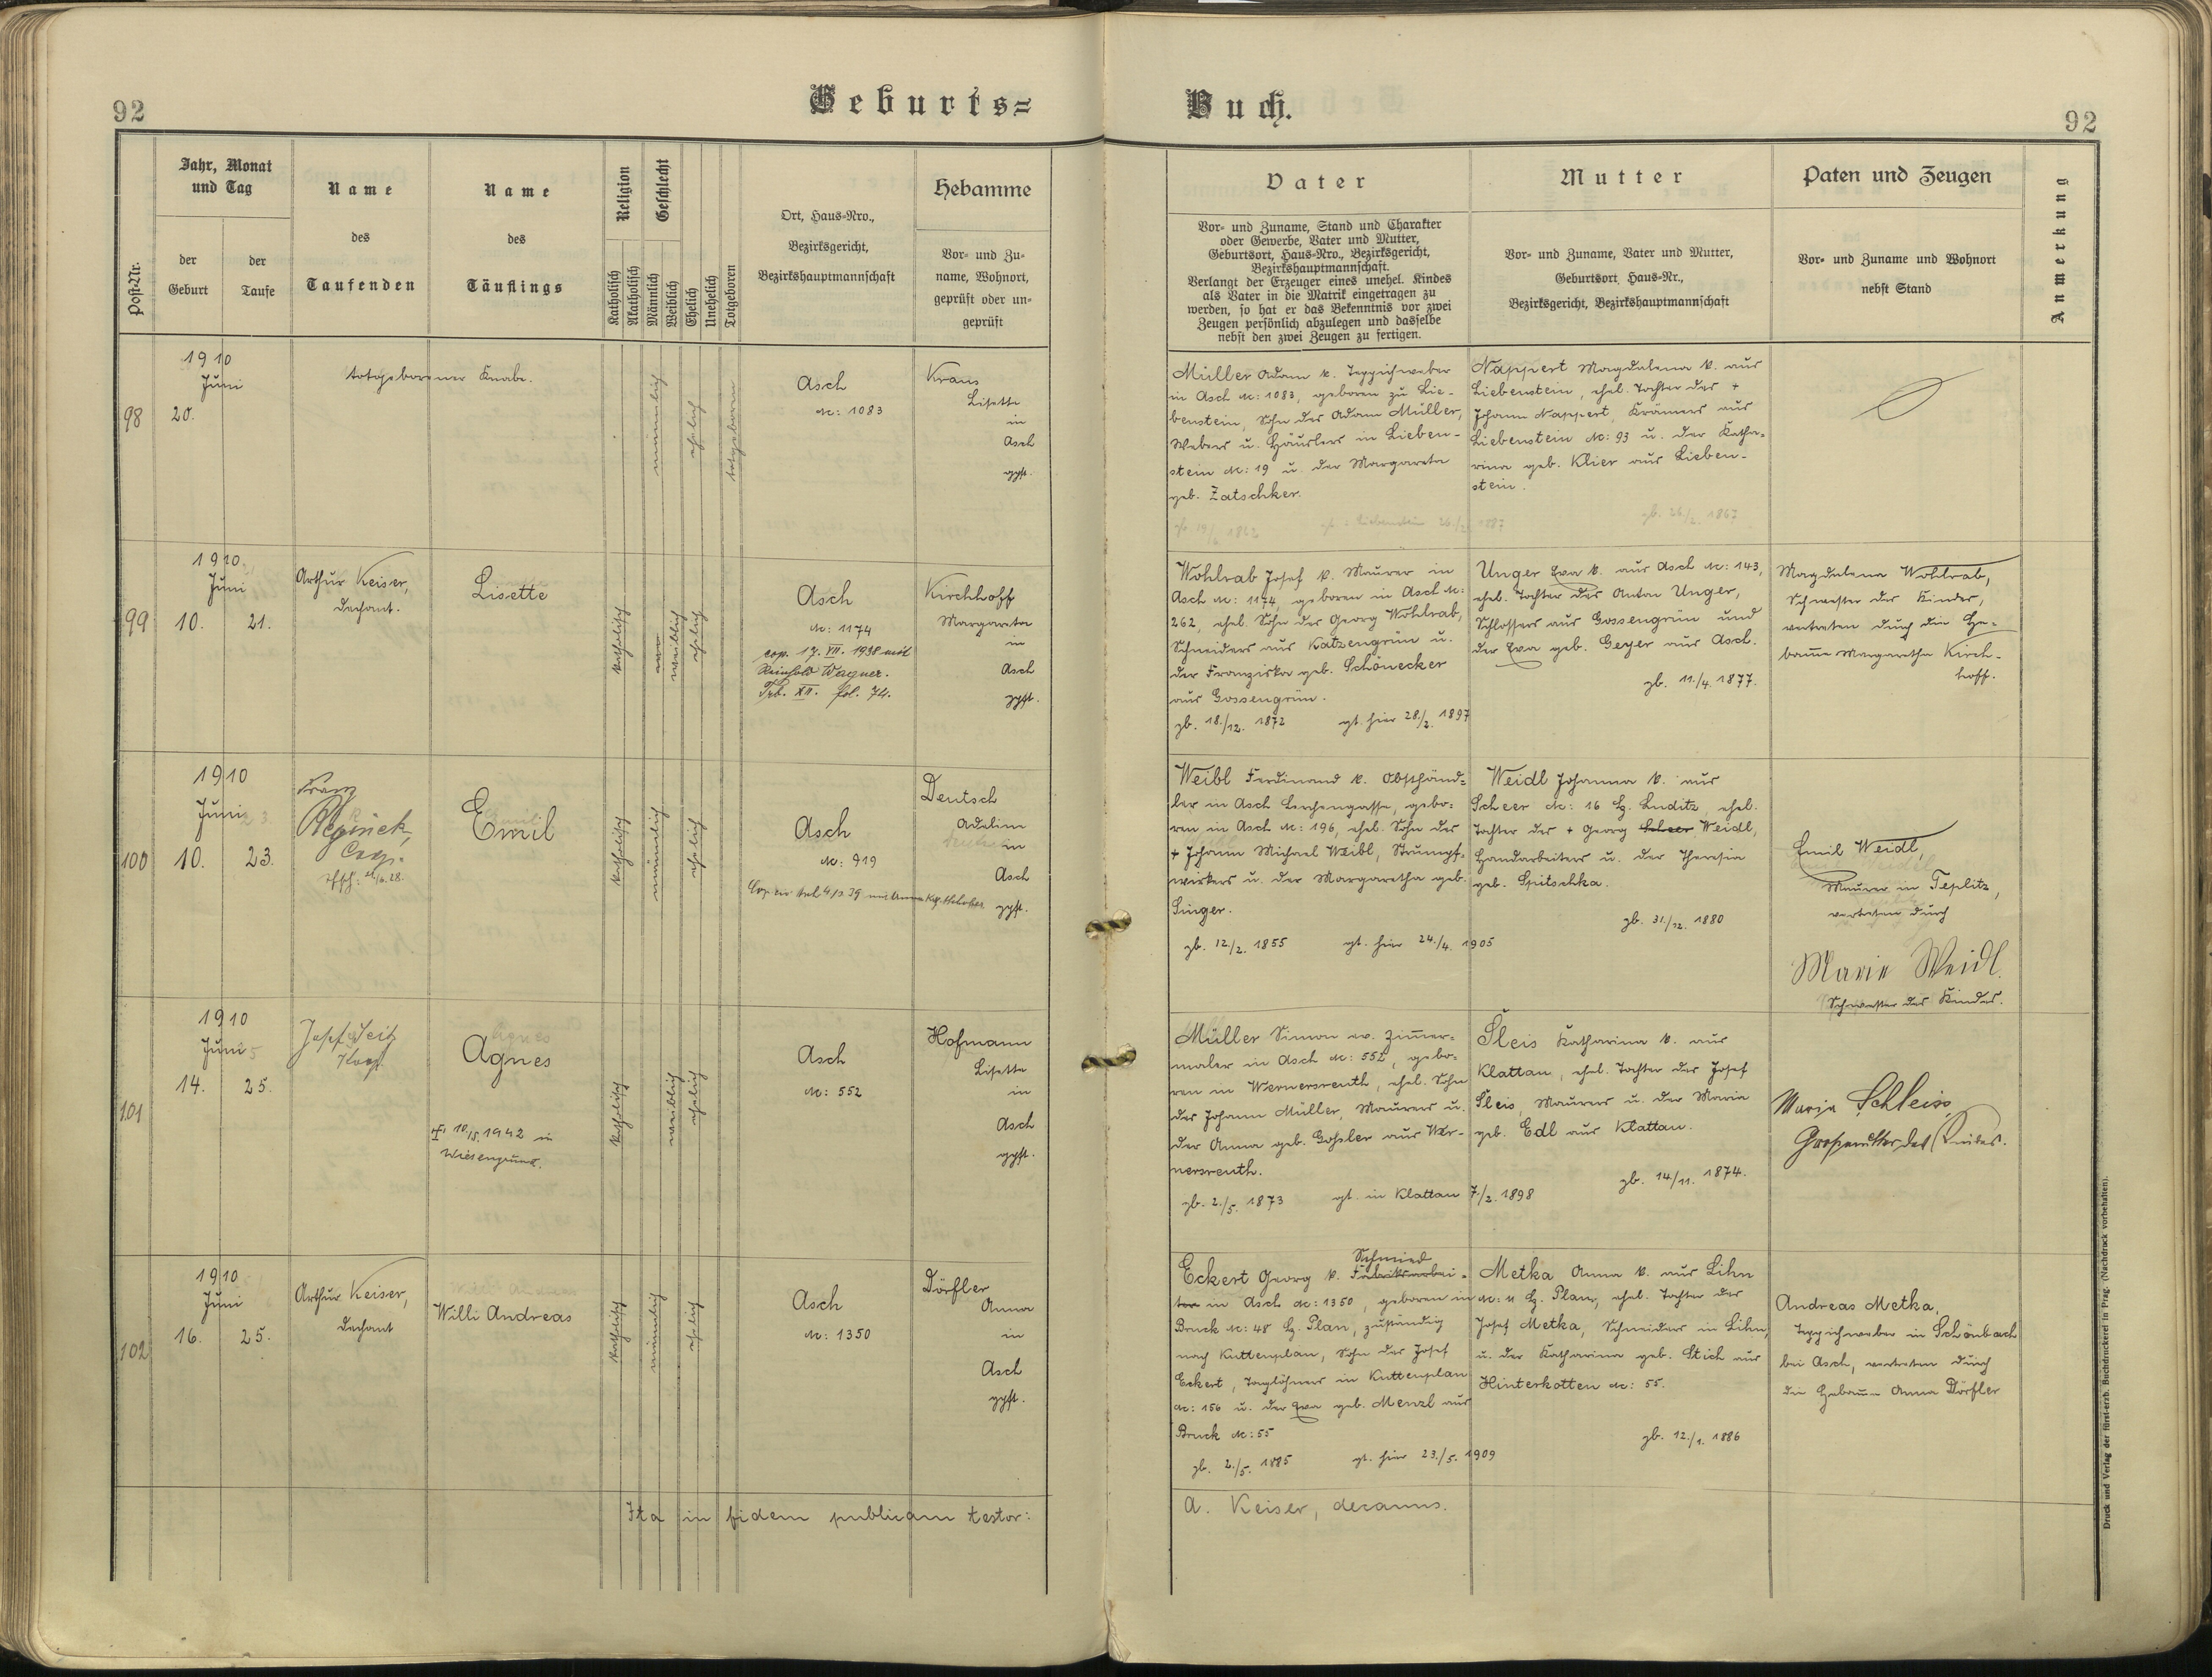 92
Geburts=
Buch.
92
Post-Nr.
Jahr, Monat
und Tag
der
Geburt
der
Taufe
Name
des
Taufenden
Name
des
Täuflings
Religion
Katholisch
Akatholisch
Geschlecht
Männlich
Weiblich
Ehelich
Unehelich
Totgeboren
Ort, Haus-Nro.,
Bezirksgericht,
Bezirkshauptmannschaft
Hebamme
Vor- und Zu-
name, Wohnort,
geprüft oder un-
geprüft
Vater
Vor- und Zuname, Stand und Charakter
oder Gewerbe, Vater und Mutter,
Geburtsort, Haus-Nro., Bezirksgericht,
Bezirkshauptmannschaft.
Verlangt der Erzeuger eines unehel. Kindes
als Vater in die Matrik eingetragen zu
werden, so hat er das Bekenntnis vor zwei
Zeugen persönlich abzulegen und dasselbe
nebst den zwei Zeugen zu fertigen.
Mutter
Vor- und Zuname, Vater und Mutter,
Geburtsort, Haus-Nr.,
Bezirksgericht, Bezirkshauptmannschaft
Paten und Zeugen
Vor- und Zuname und Wohnort
nebst Stand
Anmerkung
98
1910
Juni
20.
totgeborener Knabe.
männlich
ehelich
totgeboren
Asch
Nc: 1083
Kraus
Lisette
in
Asch
gpft.
Müller Adam k. Teppichweber
in Asch Nc: 1083, geboren zu Lie-
benstein, Sohn des Adam Müller,
Webers u. Häuslers in Lieben-
stein Nc: 19 u. der Margareta
geb. Zatschker.
gt.: Liebenstein 26./2. 1887
Nappert Magdalena k. aus
Liebenstein, ehel. Tochter des +
Johann Nappert, Krämers aus
Liebenstein Nc: 93 u. der Katha-
rina geb. Klier aus Lieben-
stein.
gb. 26./2. 1867
99
1910
Juni
10. 21.
Arthur Keiser,
Dechant.
Lisette
katholisch
weiblich
ehelich
Asch
Nc: 1174
cop. 17. VII. 1938 mit
Reinhold Wagner.
Trb. XII. fol. 74.
Kirchhoff
Margareta
in
Asch
gpft.
Wohlrab Josef k. Maurer in
Asch Nc: 1174, geboren in Asch Nc:
262, ehel. Sohn des Georg Wohlrab,
Schneiders aus Katzengrün u.
der Franziska geb. Schönecker
aus Gossengrün.
gb. 18./12. 1872 gt. hier 28./2. 1897
Unger Eva k. aus Asch Nc: 143,
ehel. Tochter des Anton Unger,
Schlossers aus Gossengrün und
der Eva geb. Geyer aus Asch.
gb. 11./4. 1877.
Magdalena Wohlrab,
Schwester des Kindes,
vertreten durch die He-
bamme Margaretha Kirch-
hoff.
100
1910
Juni
10. 23.
Franz
Coop.
Emil
katholisch
männlich
ehelich
Asch
Nc: 919
Deutsch
Adeline
in
Asch
gpft.
Weibl Ferdinand k. Obsthänd-
ler in Asch Lerchengasse, gebo-
ren in Asch Nc: 196, ehel. Sohn des
+ Johann Michael Weibl, Strumpf-
wirkers u. der Margaretha geb.
Singer.
gb. 12./2. 1855 gt. hier 24./4. 1905
Weidl Johanna k. aus
Scheer Nc: 16 Bz. Luditz, ehel.
Tochter des + Georg Scheer Weidl,
Handarbeiters u. der Theresia
geb. Spitschka.
gb. 31./12. 1880
Emil Weidl,
Maurer in Teplitz,
vertreten durch
Marie Weidl.
Schwester des Kindes.
101
1910
Juni
14. 25.
Josef Seitz
Koop.
Agnes
+ 10./5. 1942 in
Wiesengrund.
katholisch
weiblich
ehelich
Asch
Nc: 552
Hofmann
Lisette
in
Asch
gpft.
Müller Simon ev. Zimmer-
maler in Asch Nc: 552, gebo-
ren in Wernersreuth, ehel. Sohn
des Johann Müller, Maurers u.
der Anna geb. Gossler aus Wer-
nersreuth.
gb. 2./5. 1873 gt. in Klattau 7./2. 1898
Šleis Katharina k. aus
Klattau, ehel. Tochter des Josef
Šleis, Maurers u. der Maria
geb. Edl aus Klattau.
gb. 14/11. 1874.
Maria Schleiss,
Grossmutter des Kindes.
102
1910
Juni
16. 25.
Arthur Keiser,
Dechant
Willi Andreas
katholisch
männlich
ehelich
Asch
Nc: 1350
Dörfler
Anna
in
Asch
gpft.
Schmied
Eckert Georg k. Fabriksarbei-
ter in Asch Nc: 1350, geboren in
Bruck Nc: 48 Bz. Plan, zuständig
nach Kuttenplan, Sohn des Josef
Eckert, Taglöhners in Kuttenplan
Nc: 156 u. der Eva geb. Menzl aus
Bruck Nc: 55
gb. 2./5. 1885 gt. hier 23./5. 1909
Metka Anna k. aus Lihn
Nc: 11 Bz. Plan, ehel. Tochter des
Josef Metka, Schneiders in Lihn,
u. der Katharina geb. Stich aus
Hinterkotten Nc: 55.
gb. 12./1. 1886
Andreas Metka,
Teppichweber in Schönbach
bei Asch, vertreten durch
die Hebamme Anna Dörfler
Ita in fidem publicam testor:
A. Keiser, decanus.
Druck und Verlag der fürst-erzb. Buchdruckerei in Prag. (Nachdruck vorbehalten).